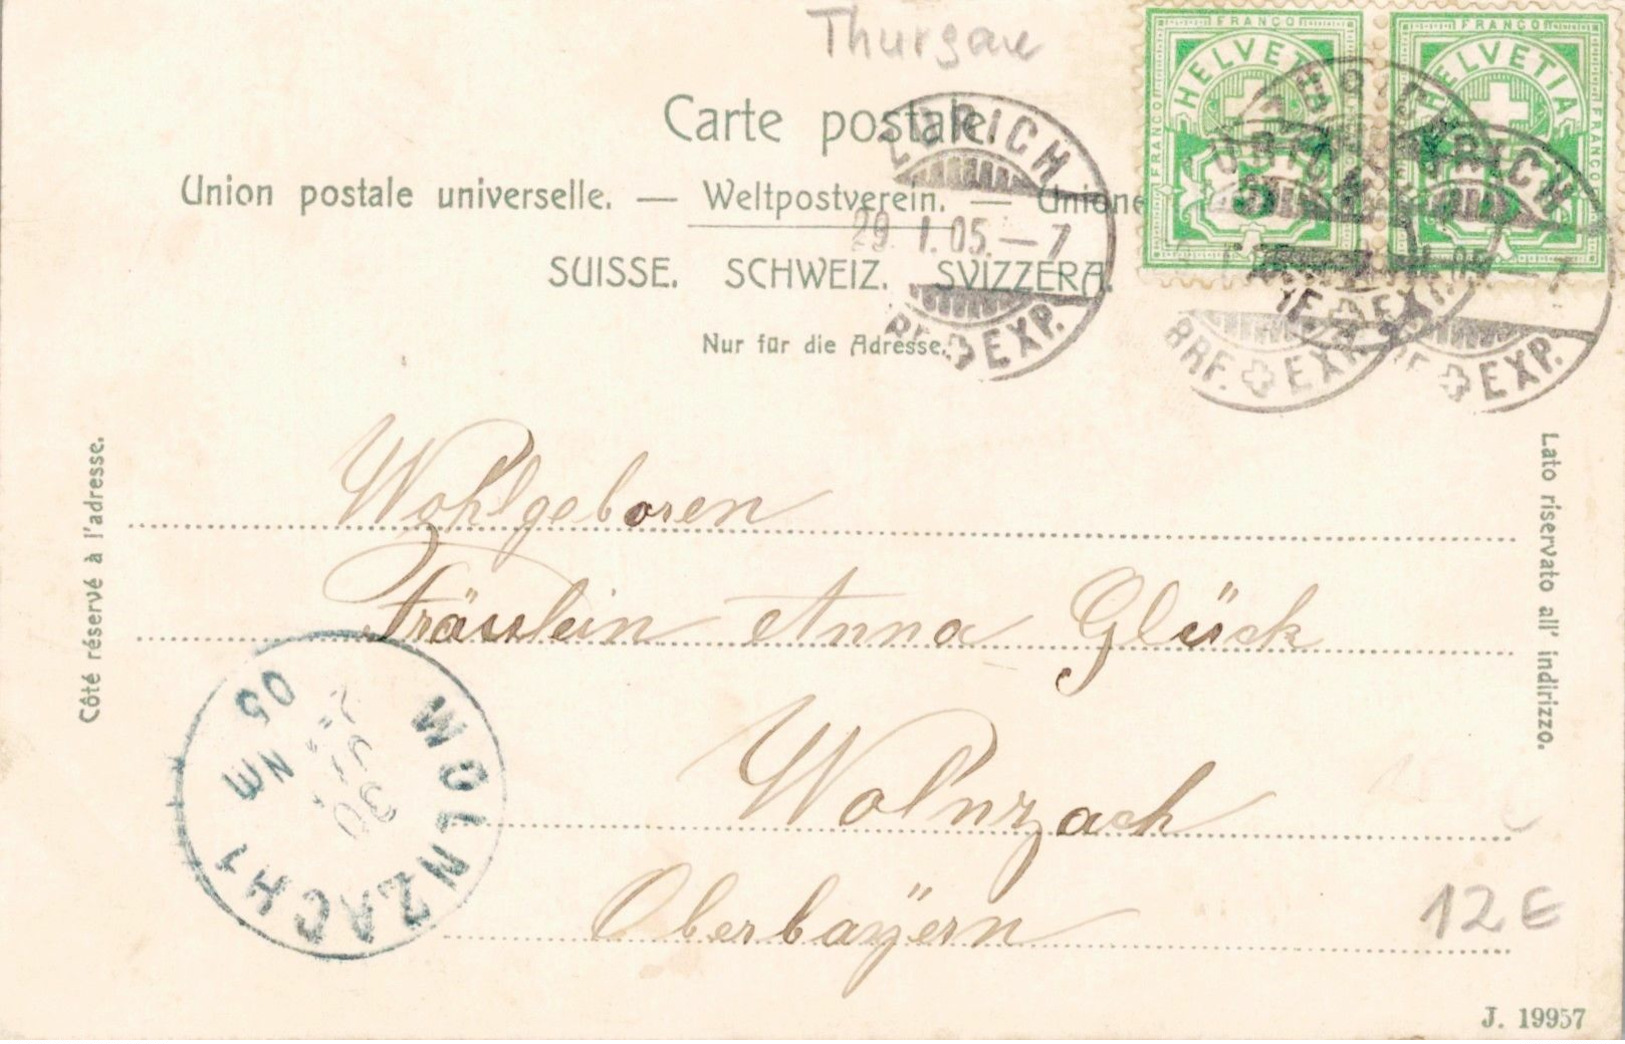 Thurgau
Carte postale.
Union postale universelle. — Weltpostverein. — Unione
SUISSE. SCHWEIZ. SVIZZERA.
Nur für die Adresse.
FRANCO HELVETIA FRANCO FRANCO 5
FRANCO HELVETIA FRANCO FRANCO
ZÜRICH
29. I. 05. — 7
BRF. EXP.
BRF. EXP.
EXP.
Côté réservé à l'adresse.
Lato riservato all' indirizzo.
Wohlgeboren
Fräulein Anna Glück
Wolnzach
Oberbayern
WOLNZACH 1
30
NM
05
12 E
J. 19957